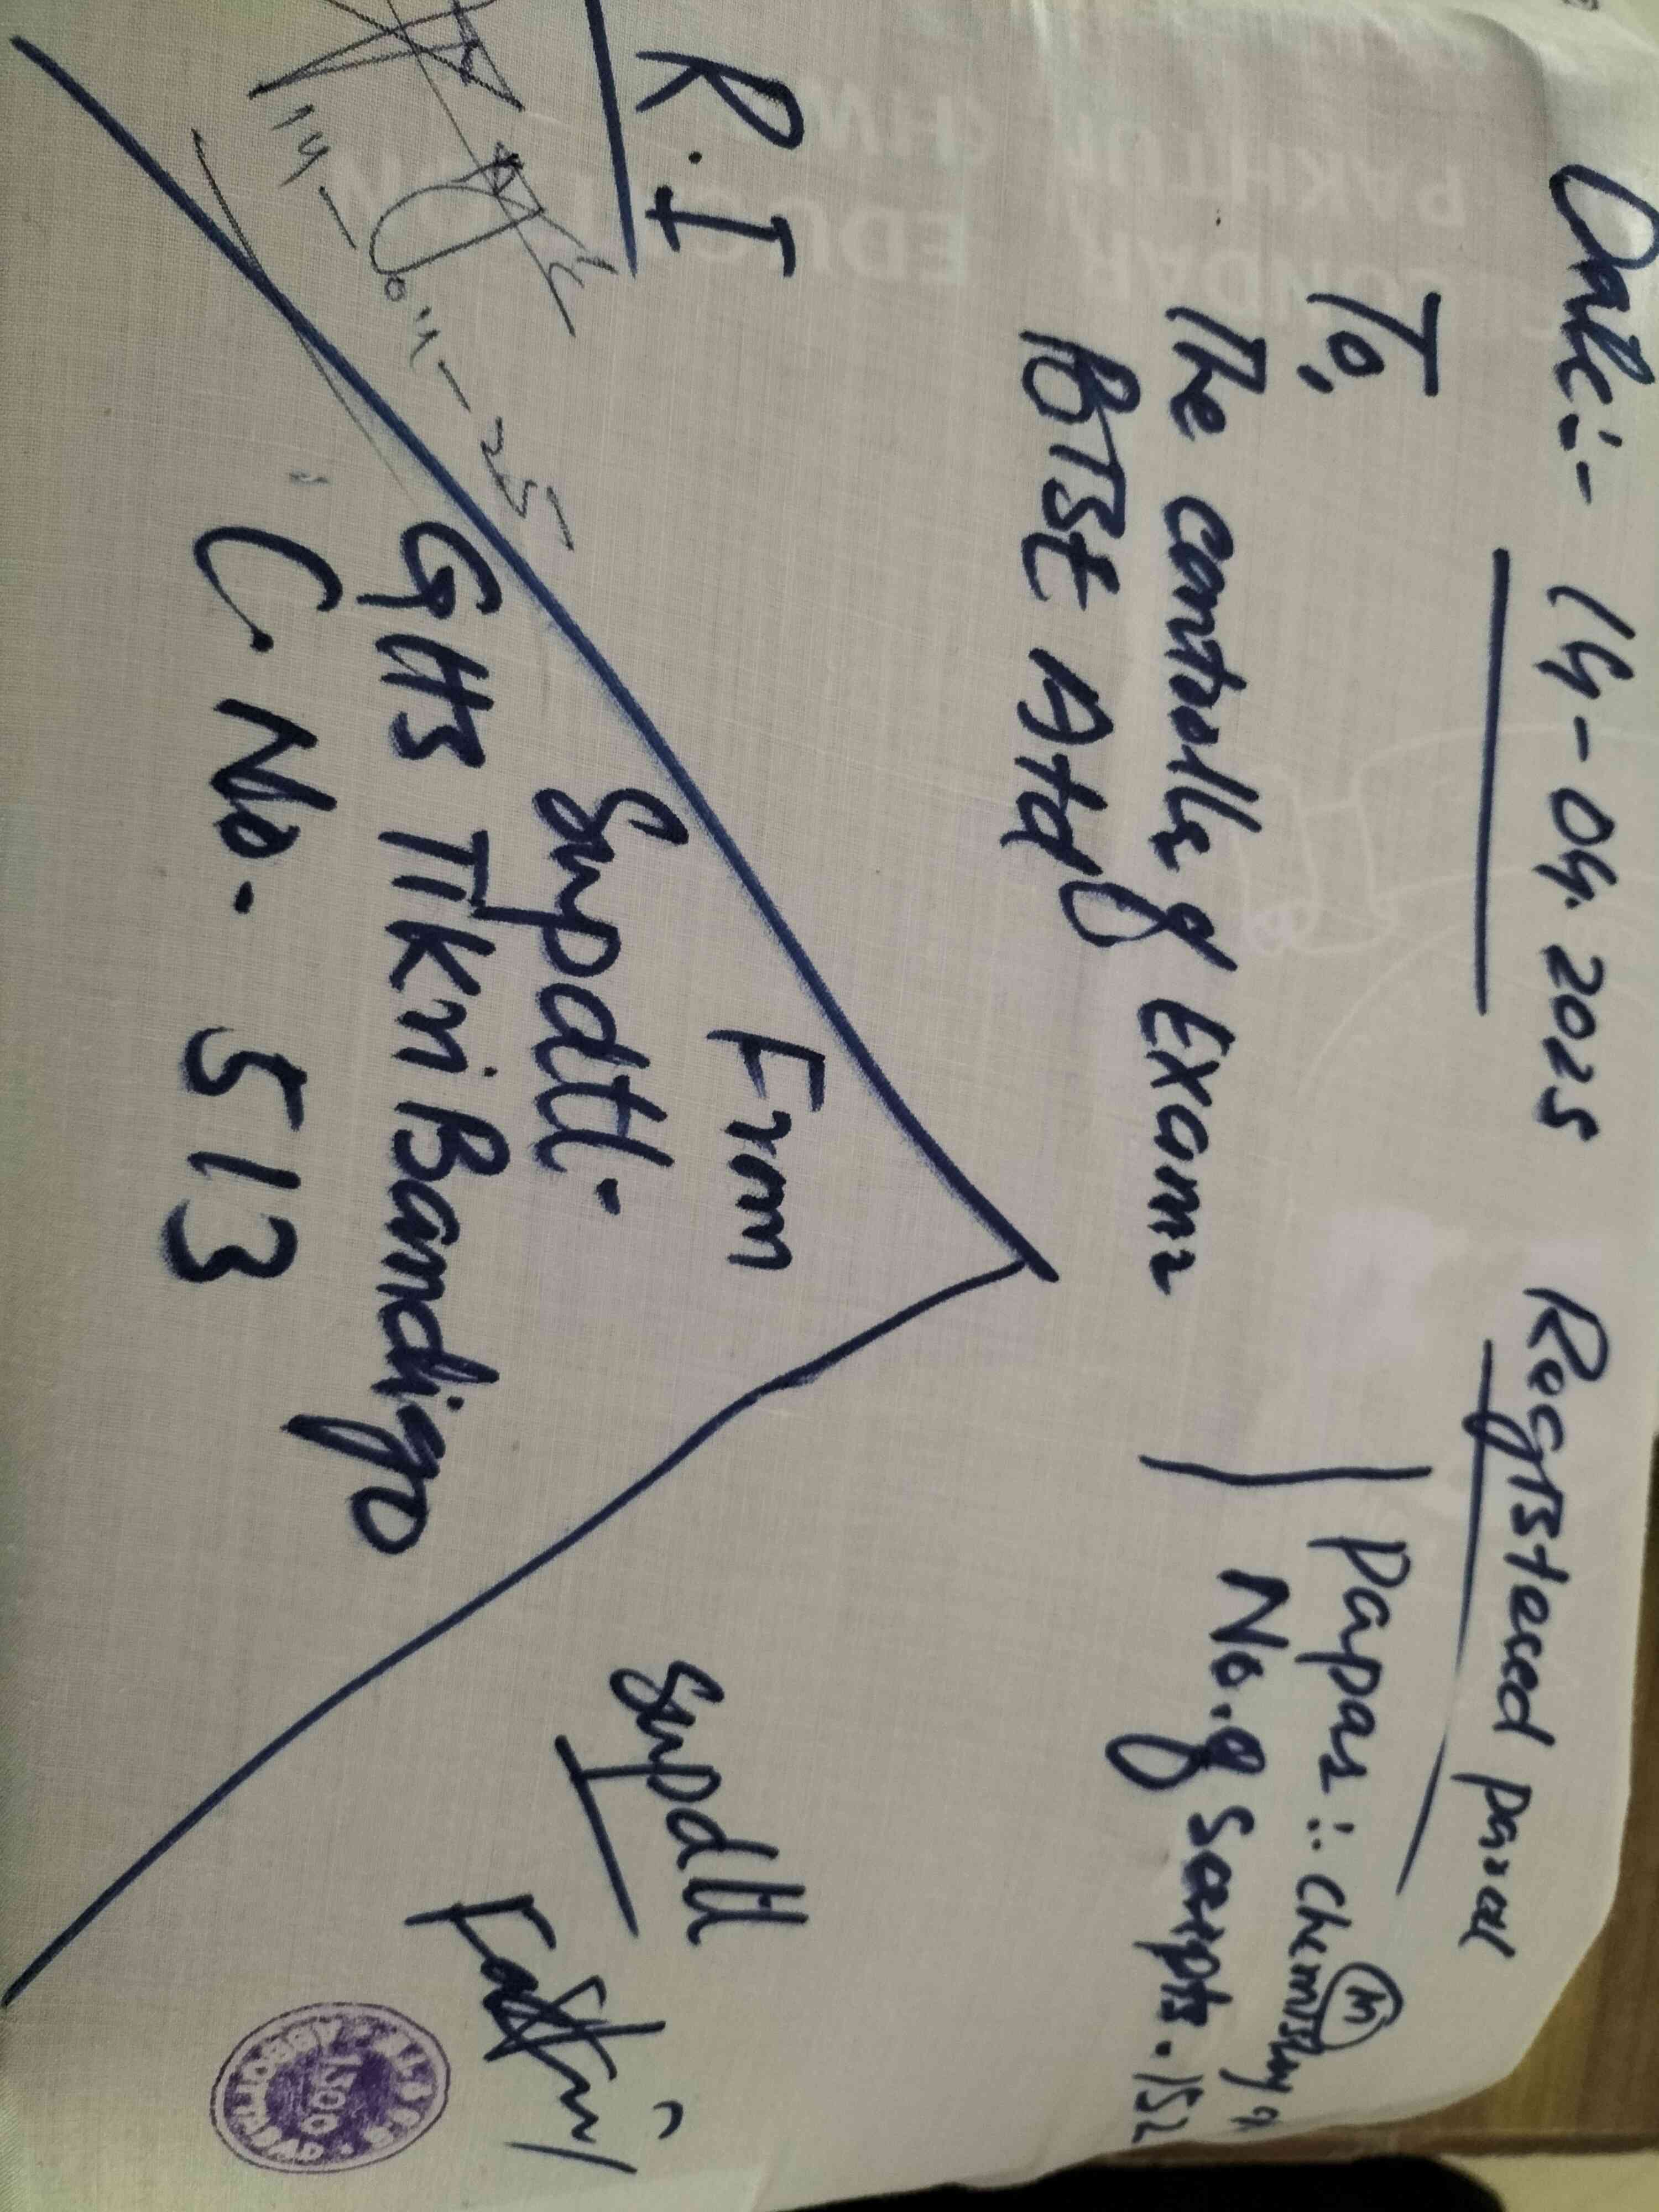 Date:- 14-04-2025
Registered parcel
To,
The controller of Exam
BISE Atd
Paper:. Chemistry 9th
(M)
No. of scripts. 152
R.I
14-04-25
From
Supdtt.
GHS Tikri Bandigo
C.No. 513
Supdtt
ABBOTTABAD